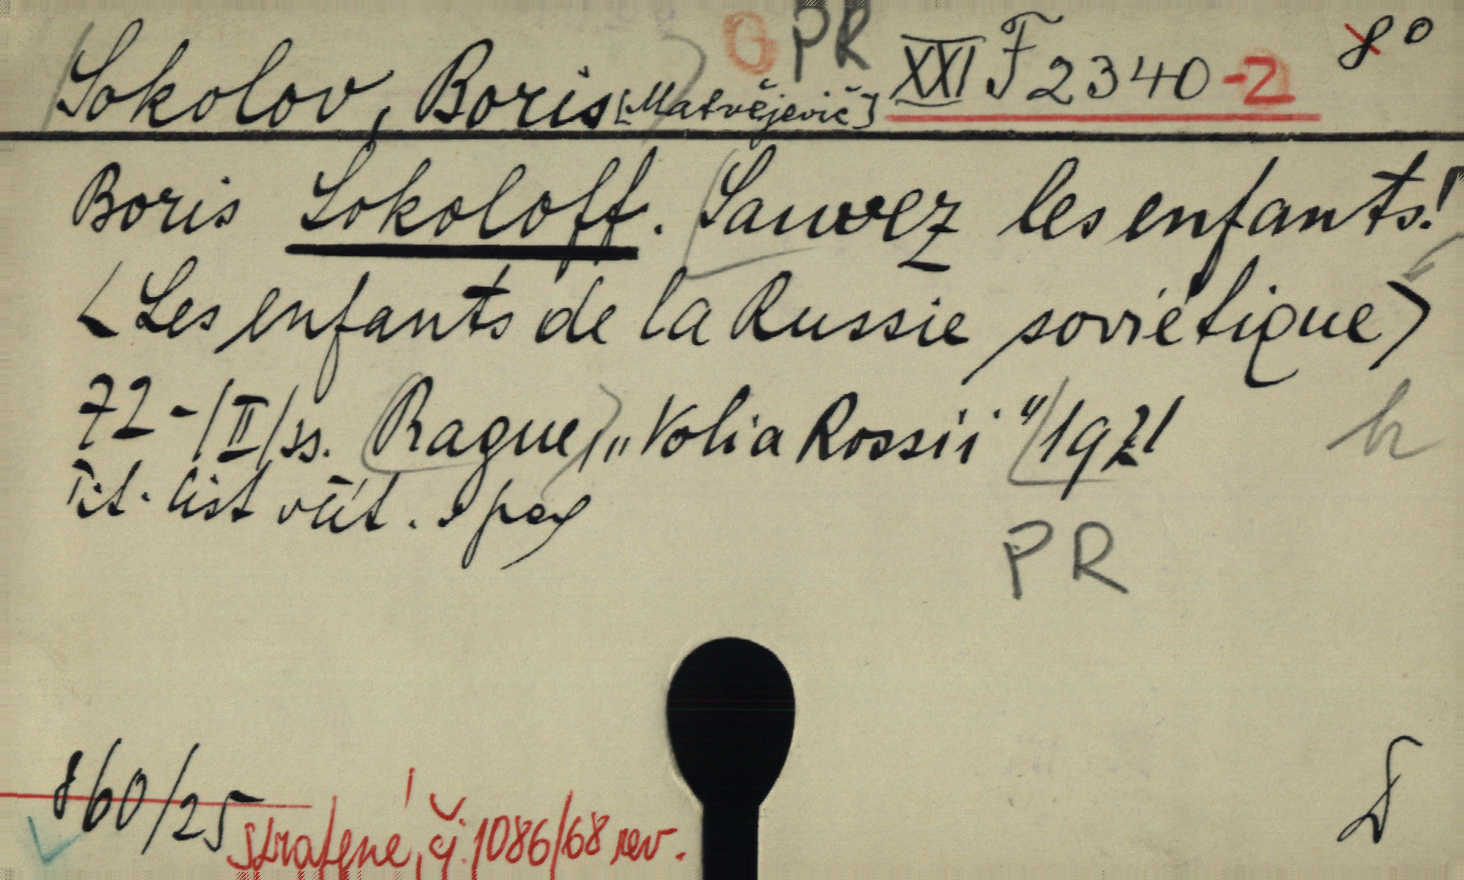 G PR XXI F 2340-2 8°
Sokolov, Boris [Matvějevič]
Boris Sokoloff. Sauvez les enfants!
<Les enfants de la Russie soviétique>
72-/II/ss. Prague, „Volia Rossii" 1921
Tit. list
PR
860/25
ztrafené, čj. 1086/68 rev.